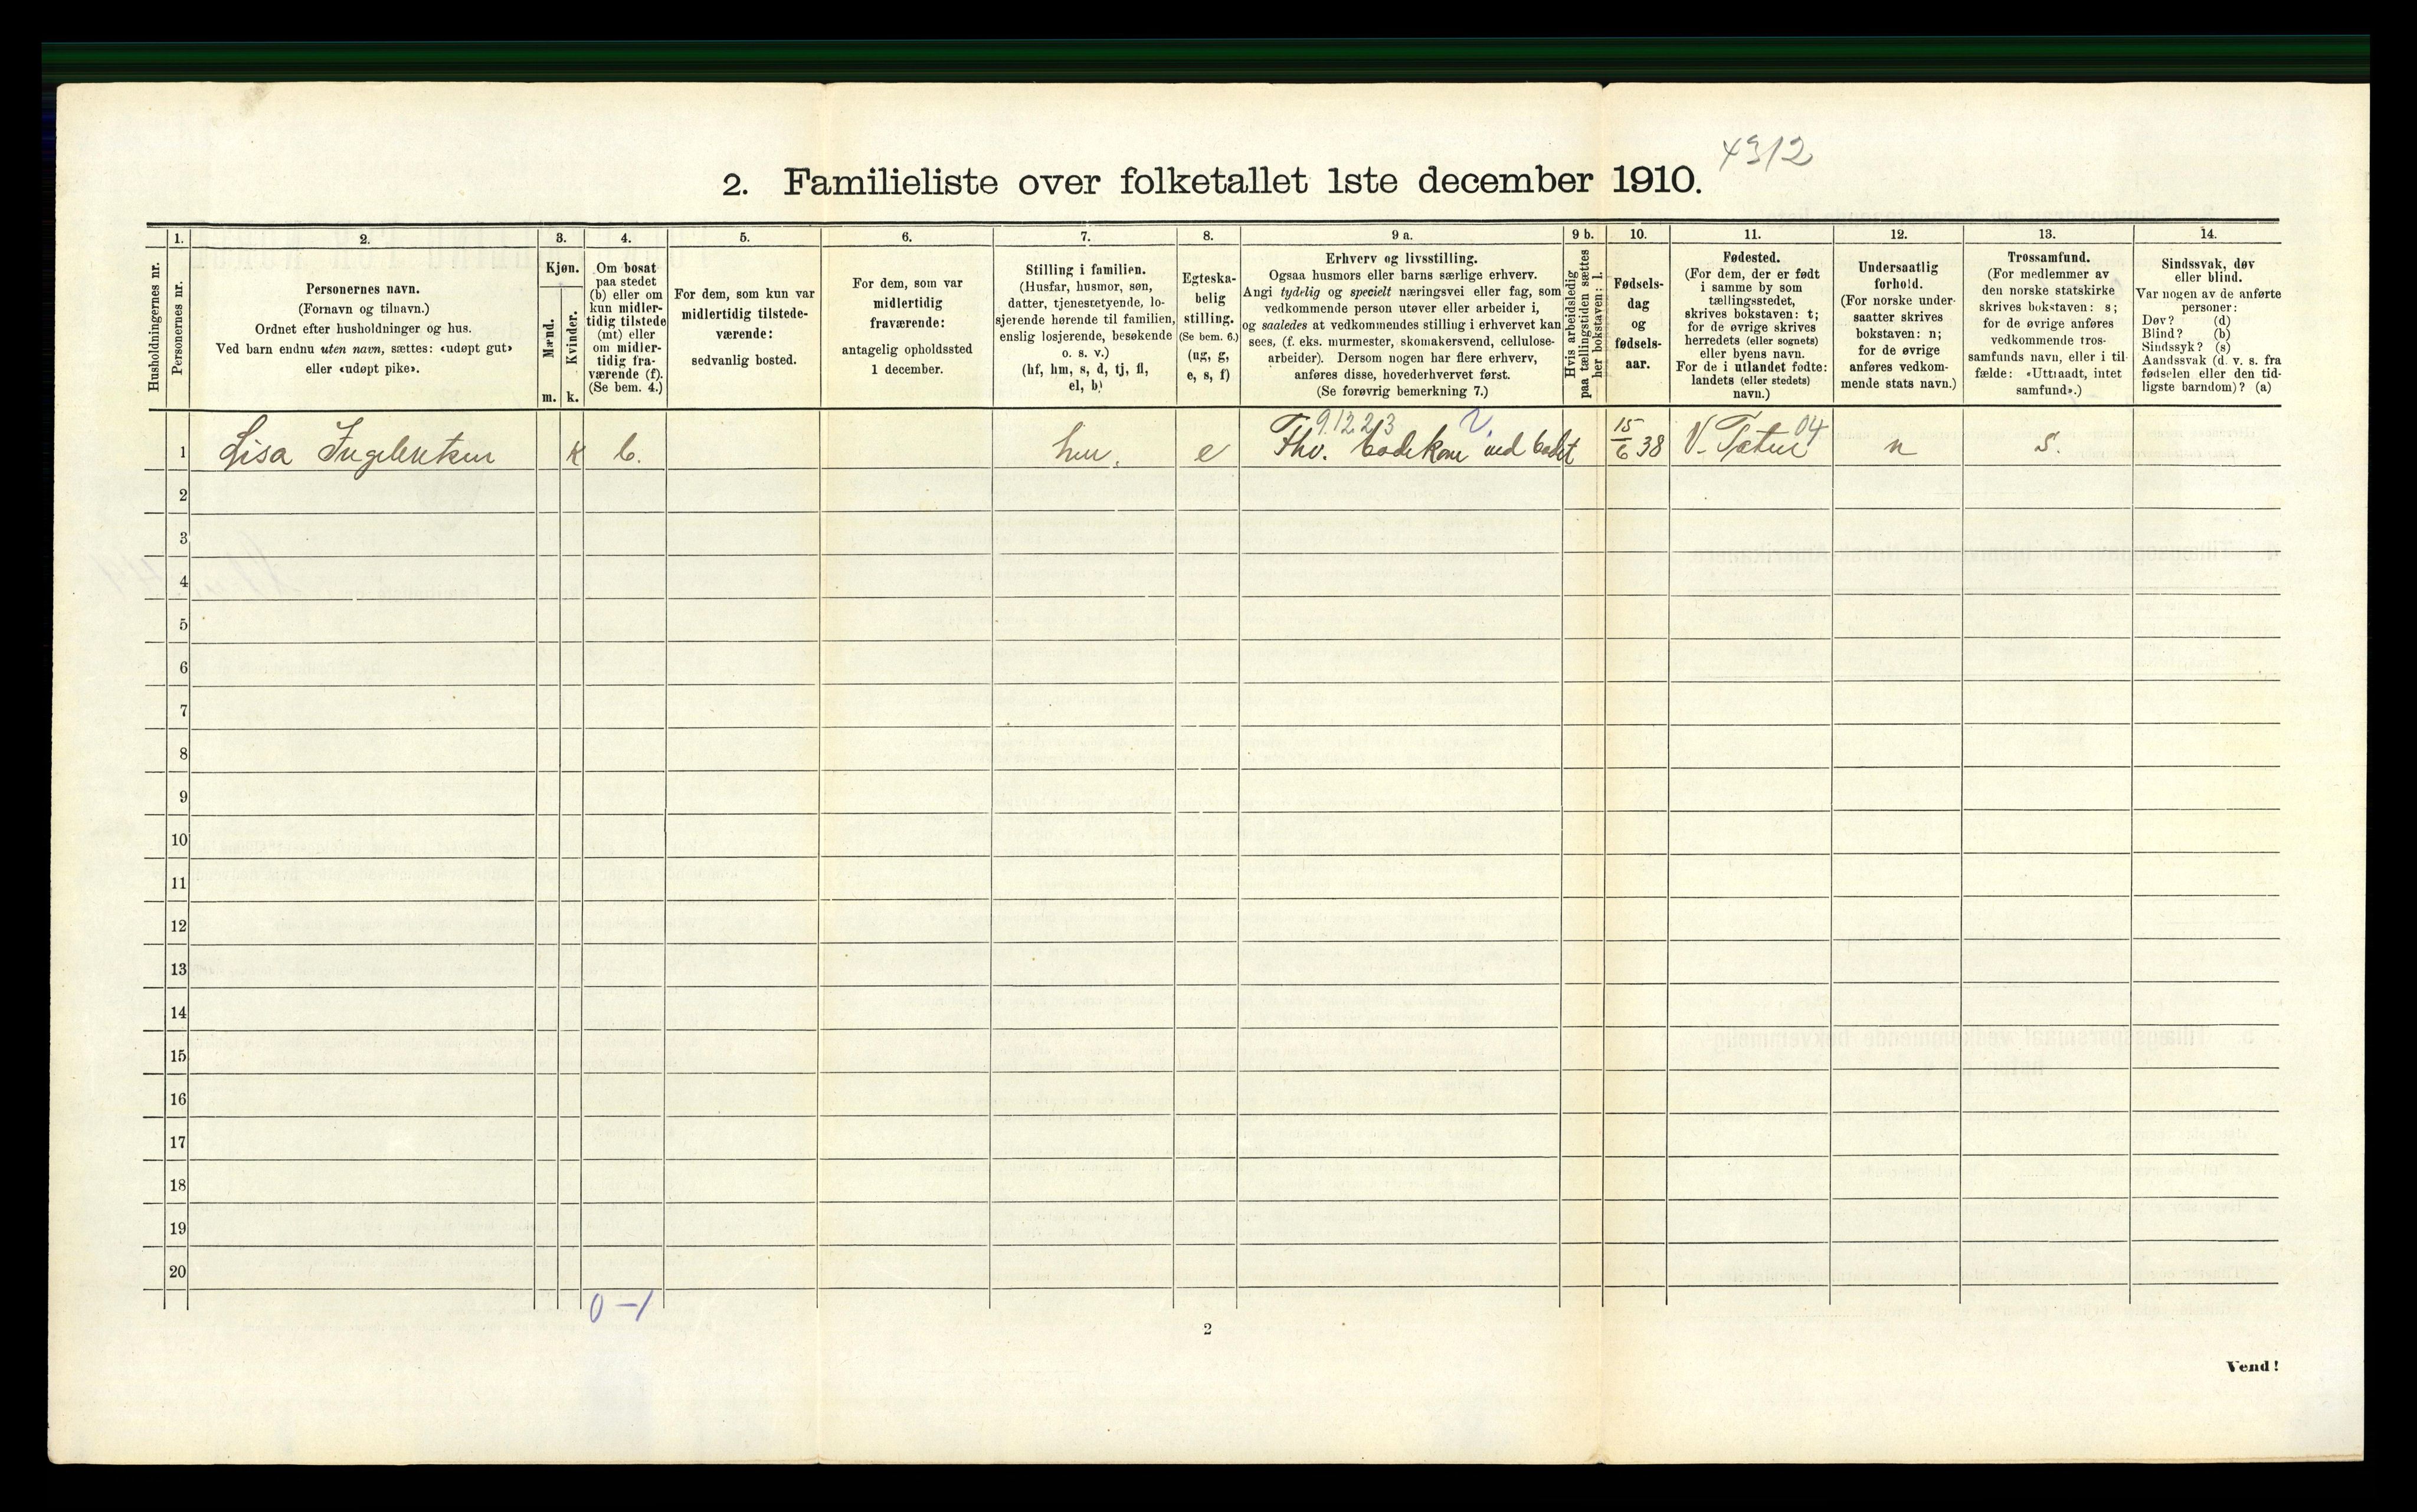 4312
2. Familieliste over folketallet 1ste december 1910.
Husholdningernes nr.
1.
Personernes nr.
2.
Personernes navn.
(Fornavn og tilnavn.)
Ordnet efter husholdninger og hus.
Ved barn endnu uten navn, sættes: «udøpt gut»
eller «udøpt pike».
3.
Kjøn.
Mænd.
Kvinder.
m. k.
4.
Om bosat
paa stedet
(b) eller om
kun midler-
tidig tilstede
(mt) eller
om midler-
tidig fra-
værende (f).
(Se bem. 4.)
5.
For dem, som kun var
midlertidig tilstede-
værende:
sedvanlig bosted.
6.
For dem, som var
midlertidig
fraværende:
antagelig opholdssted
1 december.
7.
Stilling i familien.
(Husfar, husmor, søn,
datter, tjenestetyende, lo-
sjerende hørende til familien,
enslig losjerende, besøkende
o. s. v.)
(hf, hm, s, d, tj, fl,
el, b)
8.
Egteska-
belig
stilling.
(Se bem. 6.)
(ug, g,
e, s, f)
9 a.
Erhverv og livsstilling.
Ogsaa husmors eller barns særlige erhverv.
Angi tydelig og specielt næringsvei eller fag, som
vedkommende person utøver eller arbeider i,
og saaledes at vedkommendes stilling i erhvervet kan
sees, (f. eks. murmester, skomakersvend, cellulose-
arbeider). Dersom nogen har flere erhverv,
anføres disse, hovederhvervet først.
(Se forøvrig bemerkning 7.)
9 b.
Hvis arbeidsledig
paa tællingstiden sættes
her bokstaven: l.
10.
Fødsels-
dag
og
fødsels-
aar.
11.
Fødested.
(For dem, der er født
i samme by som
tællingsstedet,
skrives bokstaven: t;
for de øvrige skrives
herredets (eller sognets)
eller byens navn.
For de i utlandet fødte:
landets (eller stedets)
navn.)
12.
Undersaatlig
forhold.
(For norske under-
saatter skrives
bokstaven: n;
for de øvrige
anføres vedkom-
mende stats navn.)
13.
Trossamfund.
(For medlemmer av
den norske statskirke
skrives bokstaven: s;
for de øvrige anføres
vedkommende tros-
samfunds navn, eller i til-
fælde: «Uttraadt, intet
samfund».)
14.
Sindssvak, døv
eller blind.
Var nogen av de anførte
personer:
Døv? (d)
Blind? (b)
Sindssyk? (s)
Aandssvak (d. v. s. fra
fødselen eller den tid-
ligste barndom)? (a)
9.12.23 04
1 Lisa Ingebretsen k b. hm. e Fhv. badekone ved badet 15/6 38 V. n s.
2
3
4
5
6
7
8
9
10
11
12
13
14
15
16
17
18
19
20
0–1
2
Vend!